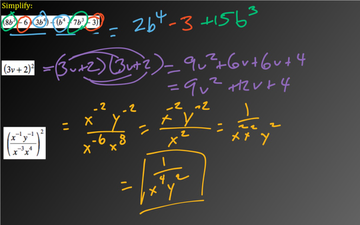 Simplify:
(8b³ - 6 + 3b⁴) - (b⁴ - 7b³ - 3) = 2b⁴ - 3 + 15b³
(3v + 2)² = (3v+2)(3v+2) = 9v² + 6v + 6v + 4
= 9v² + 12v + 4
(x⁻¹y⁻¹ / x⁻³x⁴)² = x⁻² y⁻² / x⁻⁶ x⁸ = x⁻² y⁻² / x² = 1 / x² x² y²
= 1 / x⁴ y²